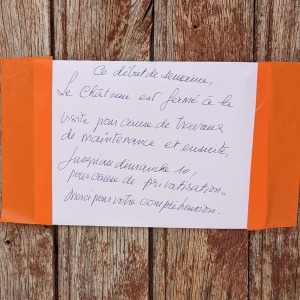 Ce début de semaine,
Le Château est fermé à la
visite pour cause de travaux
de maintenance et ensuite,
Jusqu'au dimanche 10,
pour cause de privatisation.
Merci pour votre compréhension.